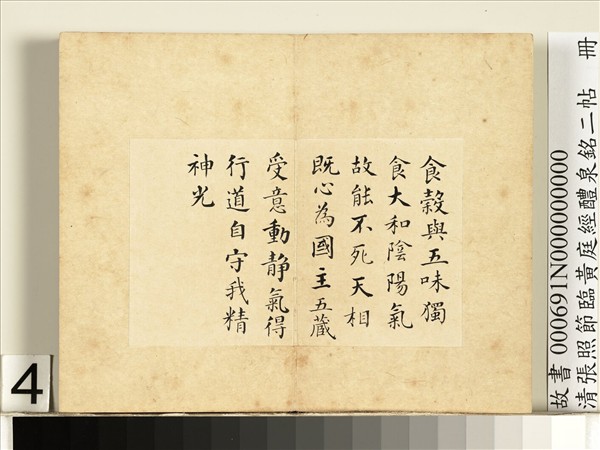 食穀與五味獨
食大和陰陽氣
故能不死天相
既心為國主五藏
受意動靜氣得
行道自守我精
神光
故書 000691N000000000
清張照節臨黃庭經醴泉銘二帖 冊
4